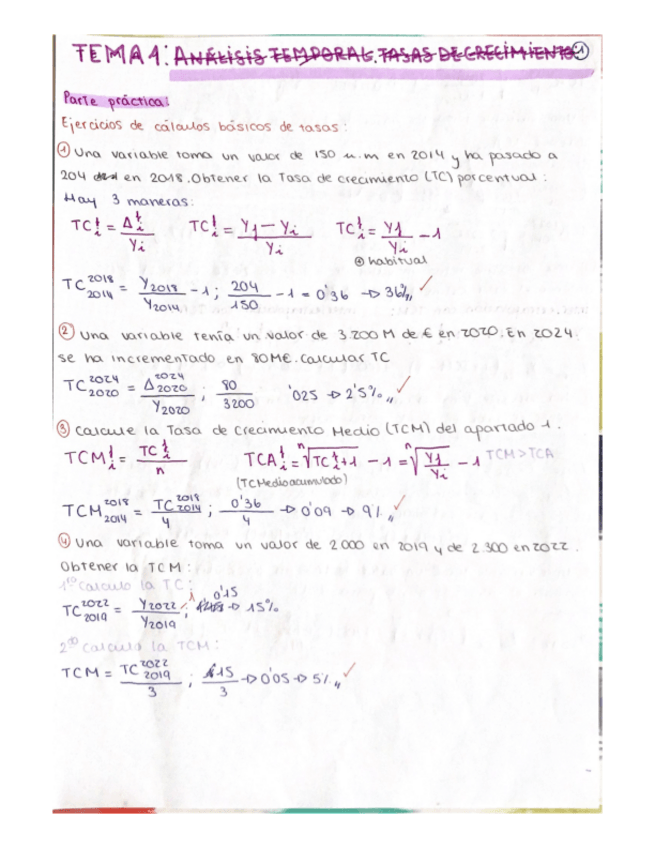 TEMA 1: ANÁLISIS TEMPORAL. TASAS DE CRECIMIENTO 1
Parte práctica:
Ejercicios de cálculos básicos de tasas:
① Una variable toma un valor de 150 u.m en 2014 y ha pasado a
204 en 2018. Obtener la Tasa de crecimiento (TC) porcentual:
Hay 3 maneras:
TC_i^1 = Δ_i^1 / Y_i   TC_i^1 = Y_1 - Y_i / Y_i   TC_i^1 = Y_1 / Y_i - 1
⊕ habitual
TC_2014^2018 = Y_2018 / Y_2014 - 1 ; 204 / 150 - 1 = 0'36 → 36%,, ✓
② Una variable tenía un valor de 3.200 M de € en 2020. En 2024
se ha incrementado en 80M€. Calcular TC
TC_2020^2024 = Δ_2020^2024 / Y_2020 ; 80 / 3200 '025 → 2'5%,, ✓
③ Calcule la Tasa de Crecimiento Medio (TCM) del apartado 1.
TCM_i^1 = TC_i^1 / n   TCA_i^1 = ⁿ√(TC_i^1 + 1) - 1 = ⁿ√(Y_1 / Y_i) - 1   TCM > TCA
(TC Medio acumulado)
TCM_2014^2018 = TC_2014^2018 / 4 ; 0'36 / 4 → 0'09 → 9%,, ✓
④ Una variable toma un valor de 2000 en 2019 y de 2.300 en 2022.
Obtener la TCM:
1º Calculo la TC:
TC_2019^2022 = Y_2022 / Y_2019 ; 0'15 → 15%
2º Calculo la TCM:
TCM = TC_2019^2022 / 3 ; 15 / 3 → 0'05 → 5%,, ✓